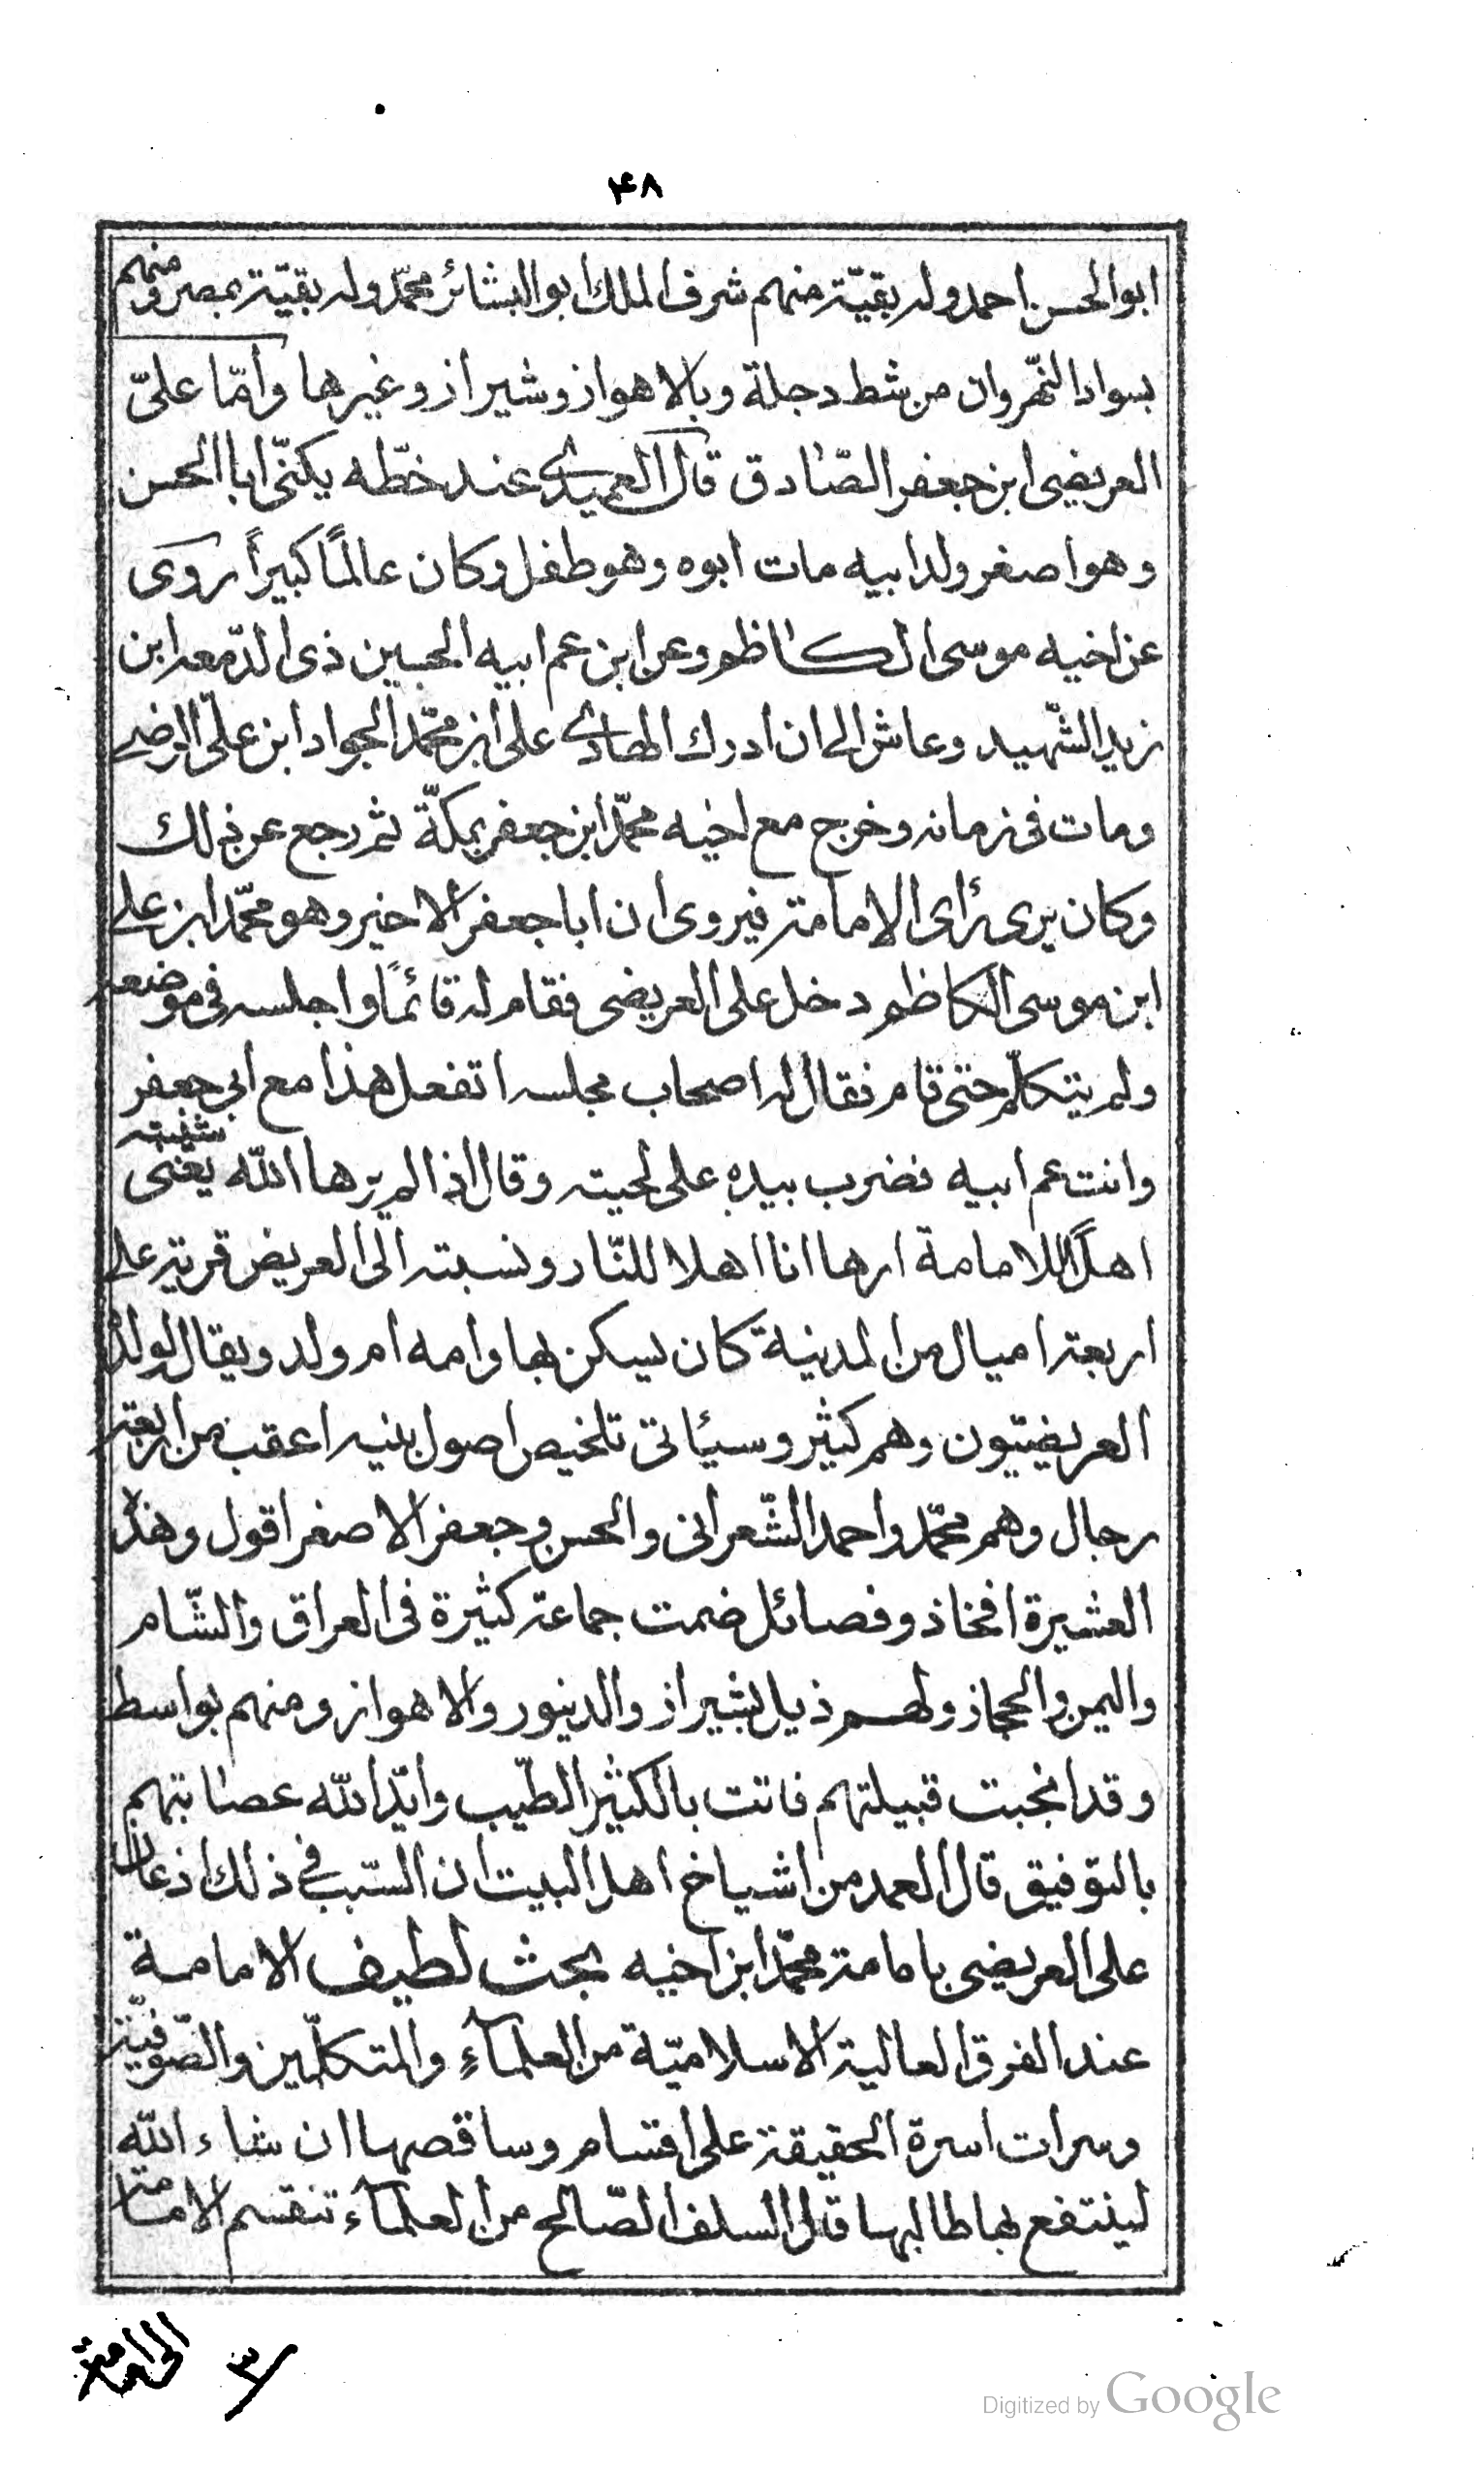 ۴۸
ابوالحسن احمد وله بقيّة منهم شرف الملك ابو البشائر محمّد وله بقيّة بمصر ومنهم
بسواد النّهروان من شط دجلة وبالاهواز وشيراز وغيرها وامّا علىّ
العريضى ابن جعفر الصّادق قال العميدى عند خطّه يكنّى ابا الحسن
وهو اصغر ولد ابيه مات ابوه وهو طفل وكان عالمًا كبيرًا روى
عن اخيه موسى الكاظم وعن ابن عم ابيه الحسين ذى الدّمعه ابن
زيد الشّهيد وعاش الى ان ادرك الهادى على ابن محمّد الجواد ابن علىّ الرضى
ومات فى زمانه وخرج مع اخيه محمّد ابن جعفر بمكّة ثم رجع عن ذلك
وكان يرى رأى الامامة فيروى ان ابا جعفر الاخير وهو محمّد ابن على
ابن موسى الكاظم دخل على العريضى فقام له قائمًا واجلسه فى موضعه
ولم يتكلّم حتى قام فقال له اصحاب مجلسه اتفعل هذا مع ابى جعفر
وانت عم ابيه فضرب بيده على لحيته وقال اذا لم يرها الله يعنى شيبته
اهلًا للامامة ارها انا اهلا للنّار ونسبته الى العريض قرية على
اربعة اميال من المدينة كان يسكن بها وامه ام ولد ويقال لولده
العريضيّون وهم كثير وسيأتى تلخيص اصول بنيه اعقب من اربعة
رجال وهم محمّد واحمد الشّعرانى والحسن وجعفر الاصغر اقول وهذه
العشيرة افخاذ وفصائل ضمت جماعة كثيرة فى العراق والشّام
واليمن والحجاز ولهم ذيل بشيراز والدينور والاهواز ومنهم بواسط
وقد انجبت قبيلتهم فاتت بالكثير الطّيب وايّد الله عصابتهم
بالتوفيق قال العمد من اشياخ اهل البيت ان السّبب فى ذلك اذعان
على العريضى بامامة محمّد ابن اخيه بحث لطيف الامامة
عند الفرق العالية الاسلاميّة من العلمآء والمتكلّمين والصّوفيّة
وسرات اسرة الحقيقة على اقسام وساقصها ان شاء الله
لينتفع بها طالبها قال السلف الصّالح من العلمآء تنقسم الامامة
٣
الى امامة
Digitized by Google